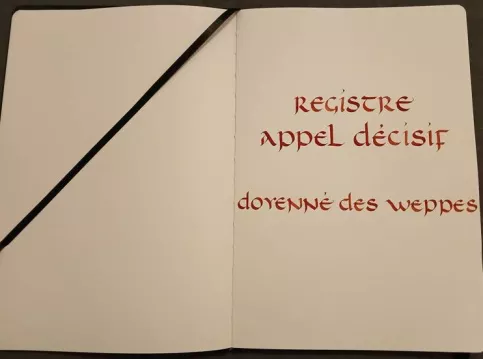 Registre
Appel décisif
doyenné des weppes